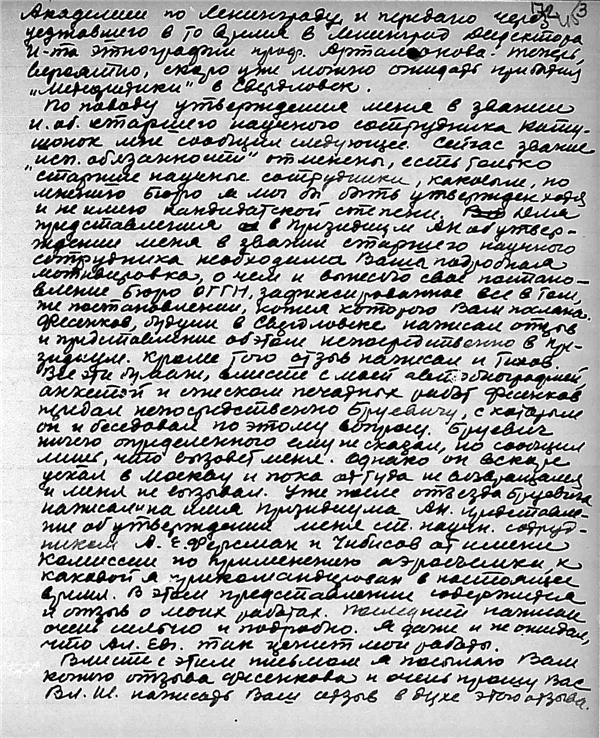 Академии по Ленинграду, и передано через
уезжавшего в то время в Ленинград директора
И-та этнографии проф. Артамонова. Теперь,
вероятно, скоро уже можно ожидать прибытия
в Свердловск.
По поводу утверждения меня в звании
и. об. старшего научного сотрудника
мне сообщил следующее. Сейчас звание
"исп. обязанности" отменены, есть только
"старшие научные сотрудники", каковым, по
мнению Бюро я мог бы быть утвержден хотя
и не имею кандидатской степени. Для
представления в Президиум Ан об утвер-
ждении меня в звании старшего научного
сотрудника необходима Ваша подробная
мотивировка, о чем и вынесло свое постано-
вление Бюро ОГГН, зафиксированное все в том
же постановлении, копия которого Вам послана.
Фесенков, будучи в Свердловске написал отзыв
и представление об этом непосредственно в Пре-
зидиум. Кроме того отзыв написал и Тихов.
Все эти бумаги, вместе с моей автобиографией,
анкетой и списком печатных работ Фесенков
придал непосредственно Бруевичу, с которым
он и беседовал по этому вопросу. Бруевич
ничего определенного ему не сказал, но сообщил
лишь, что вызовет меня. Однако он вскоре
уехал в Москву и пока оттуда не возвращался
и меня не вызывал. Уже после отъезда Бруевича
написали на имя президиума Ан. представле-
ние об утверждении меня ст. научн. сотруд-
ником А. Е. Ферсман и Чибисов от имени
Комиссии по применению аэросъемки, к
каковой я прикомандирован в настоящее
время. В этом представлении содержится
и отзыв о моих работах. Последний написан
очень сильно и подробно. Я даже и не ожидал,
что Ал. Ев. так ценит мои работы.
Вместе с этим письмом я посылаю Вам
копию отзыва Фесенкова и очень прошу Вас
Вл. И. написать Ваш отзыв в духе этого отзыва.